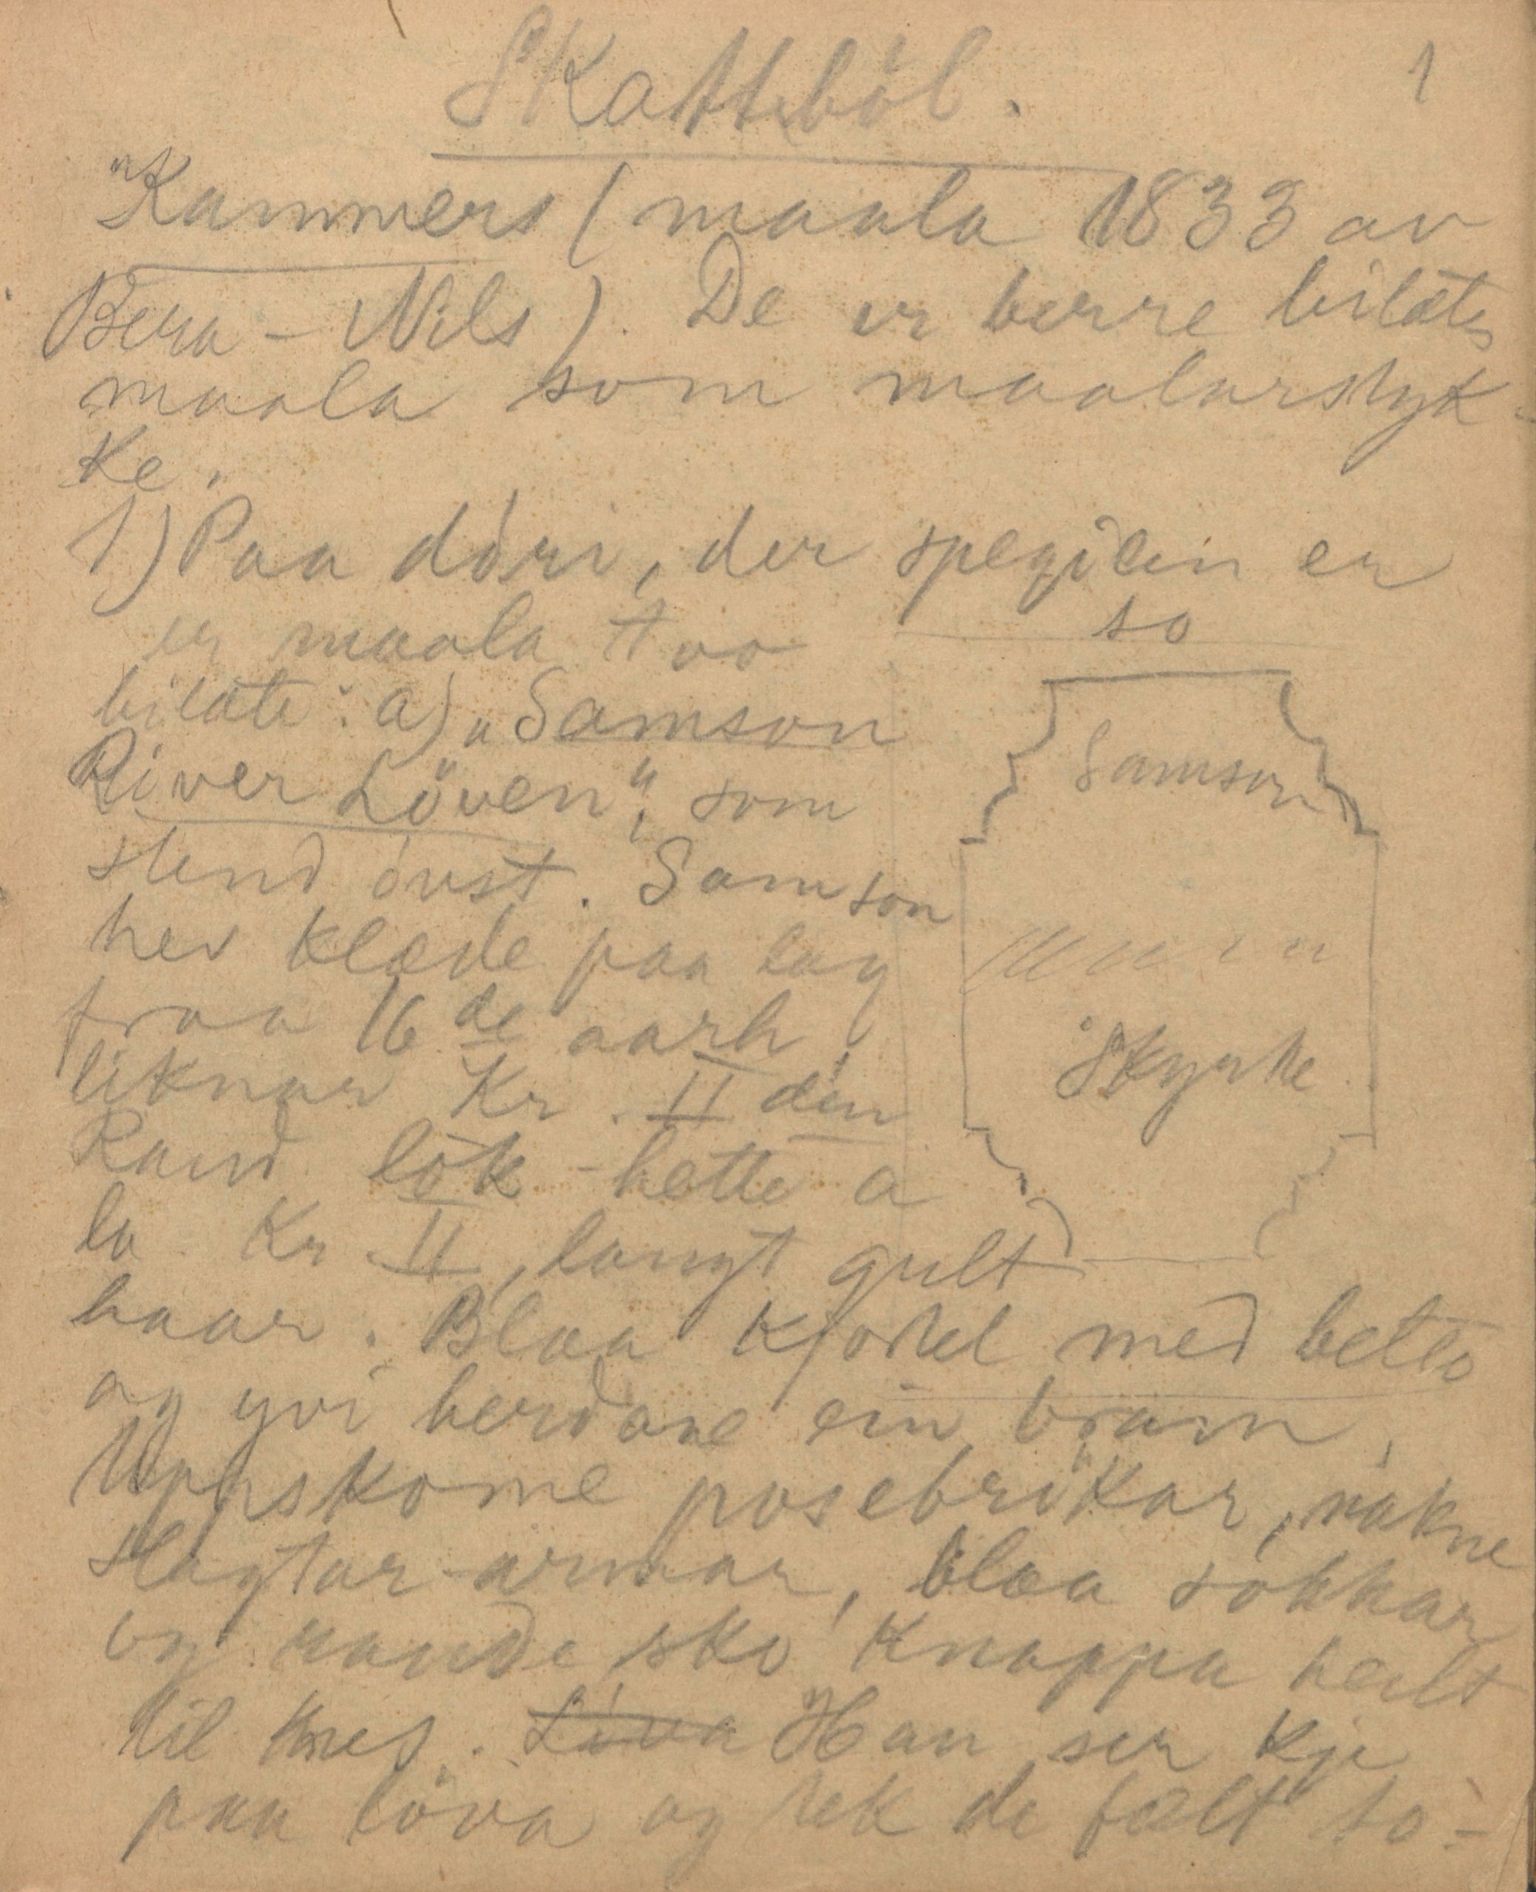 Skattebòl.
1
"Kammers (maala 1833 av
Bera-Nils). De er berre bilæte
maala som maalarstyk-
ke.
1) Paa dòri, der spegilen er
so
er maala tvo
bilæte: a) „Samson
River Löven", som
stend òvst. Samson
hev klæde paa lag
fraa 16de aarh,
liknar Kr. II den
Raud lòk-hette a
la Kr. II, langt gult
haar. Blaa kjortel med belte
og yvi herdane ein bram,
Uppskorne posebrökar, nakne
slagtar-armar, blaa sokkar
og raude sko knappa heilt
til knes. Han ser kje
paa löva og tek de fælt so-
Samson
Skyrke